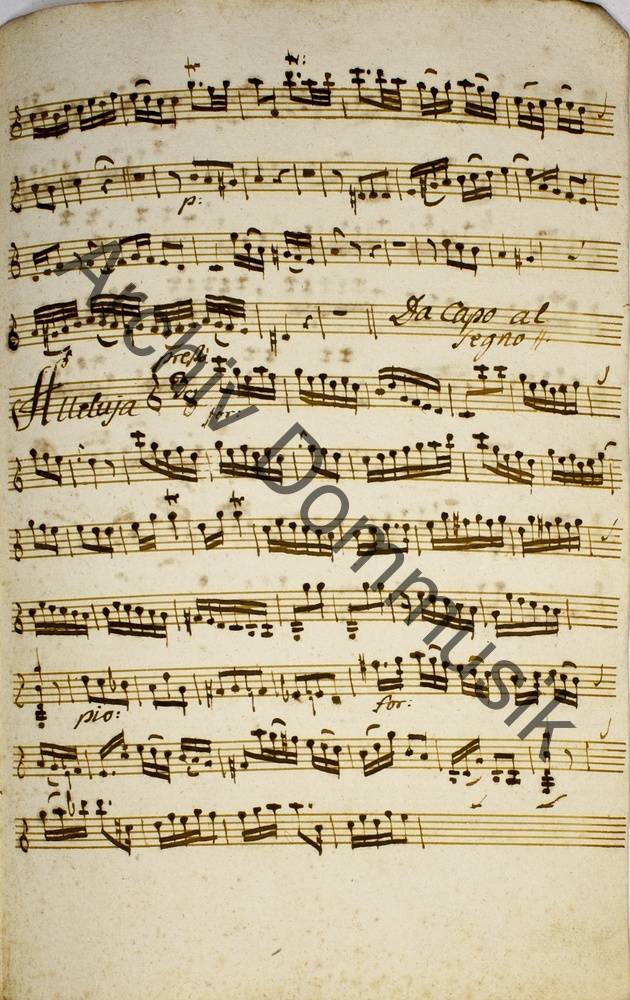 p:
Da Capo al
Segno
presto
Alleluja
for:
pio:
for:
Archiv Dommusik